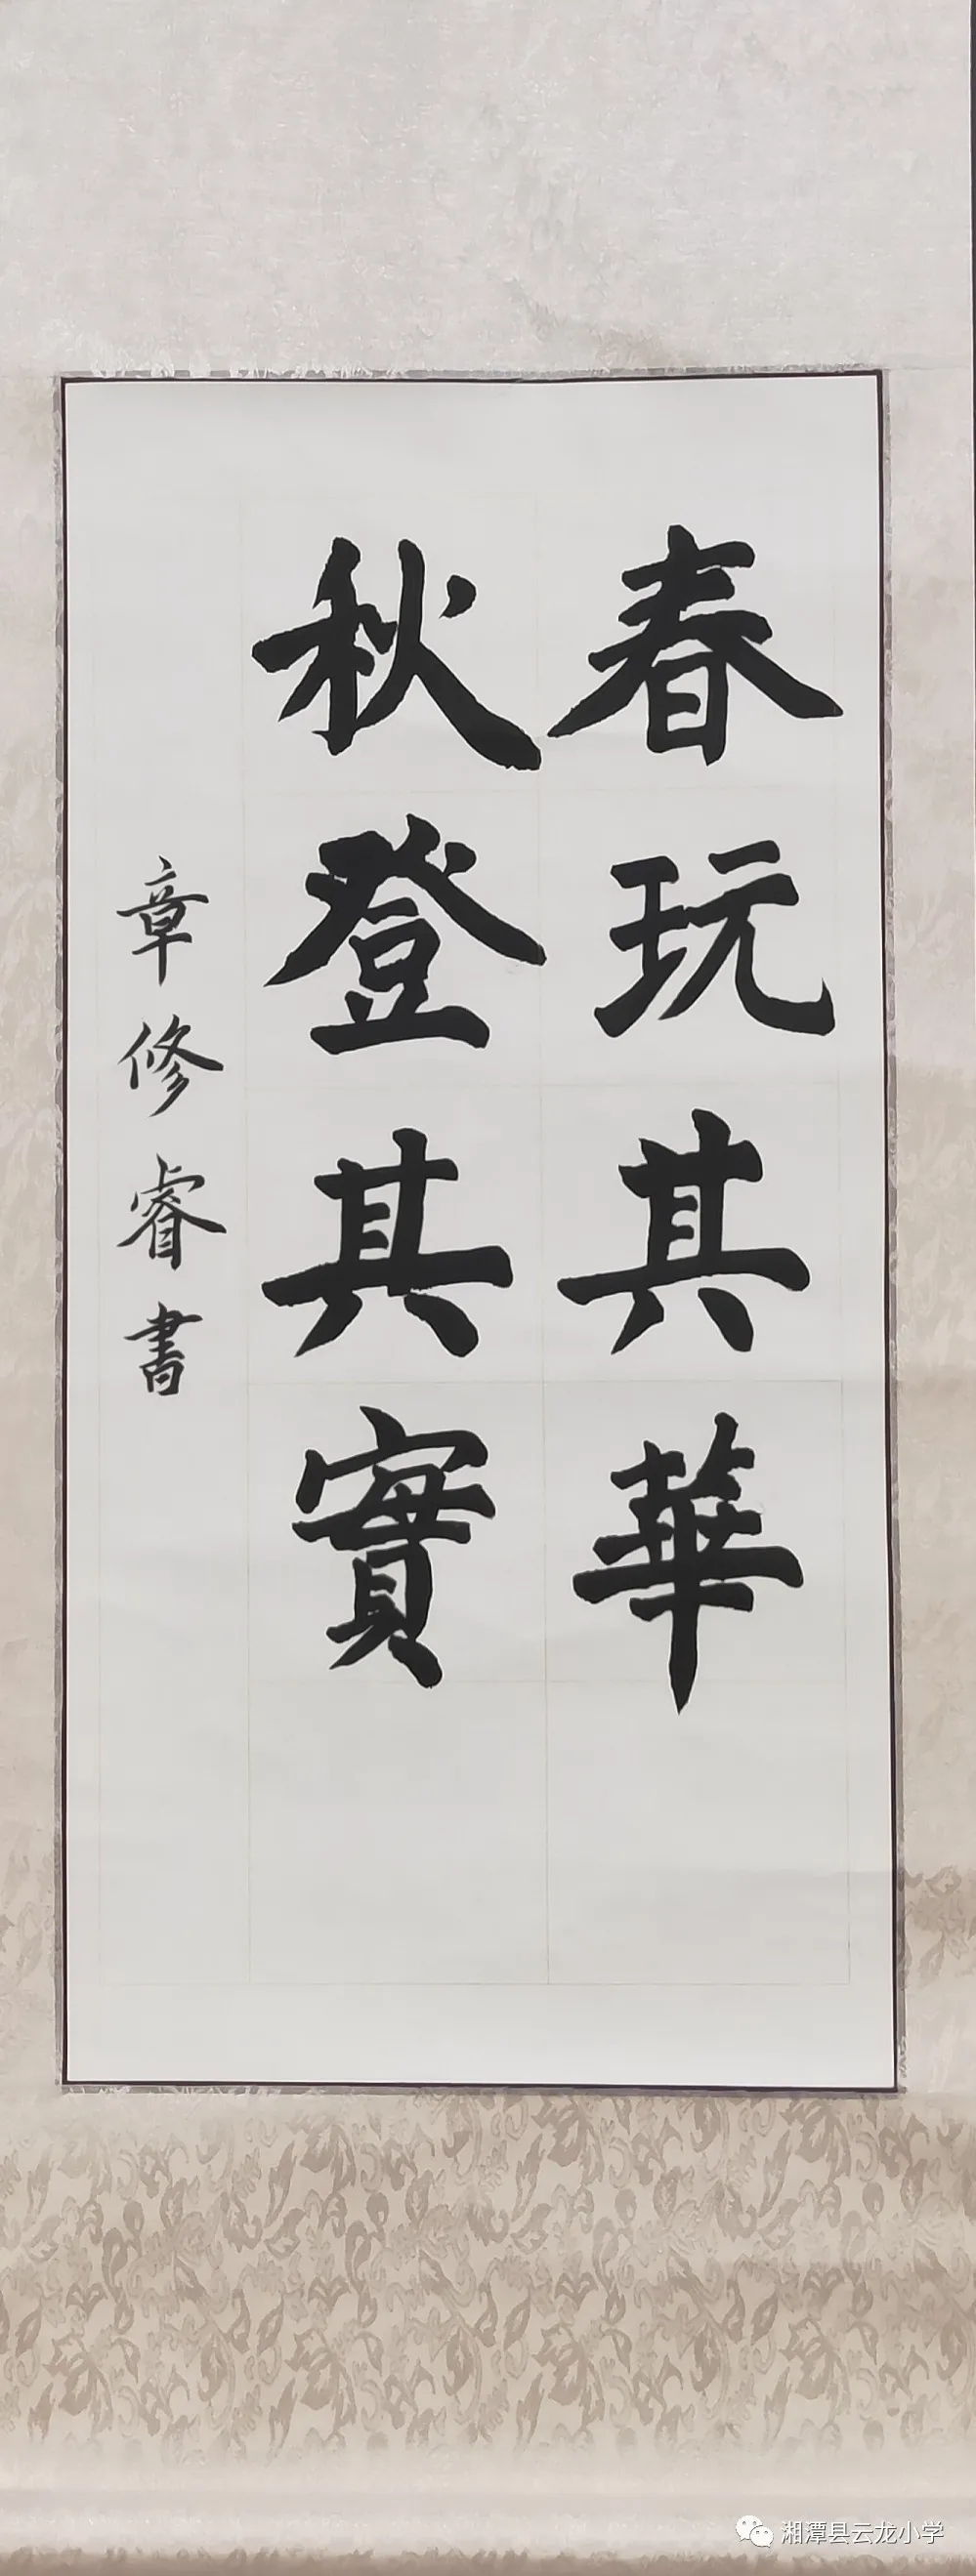 春玩其華
秋登其實
章修睿書
湘潭县云龙小学